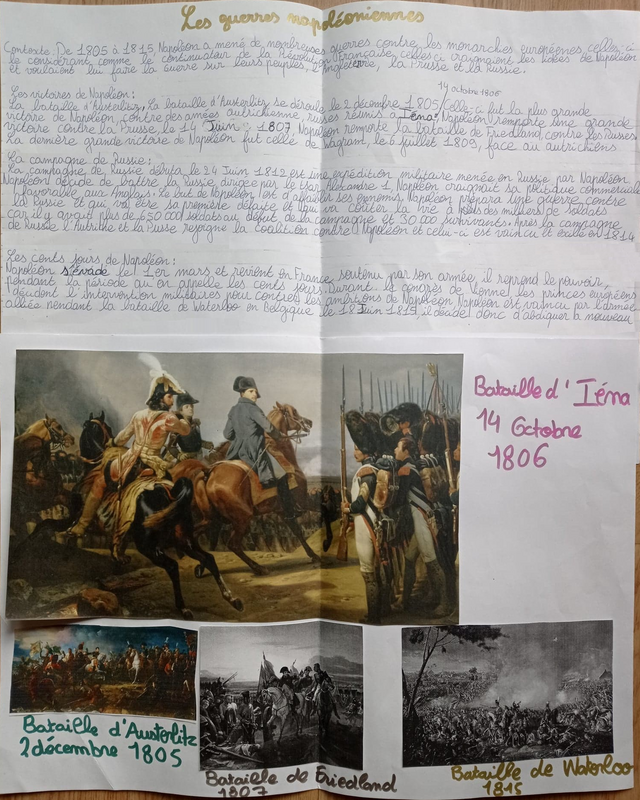 Les guerres napoléoniennes
Contexte: De 1805 à 1815, Napoléon a mené de nombreuses guerres contre les monarches européennes, celles-ci
le considérant comme le continuateur de la Révolution Française, celles-ci craignaient les idées de Napoléon
et voulaient lui faire la guerre sur leurs peuples, l'Angleterre, la Prusse et la Russie.
Les victoires de Napoléon:
14 octobre 1806
La bataille d'Austerlitz, La bataille d'Austerlitz se déroule le 2 décembre 1805, Celle-ci fut la plus grande
victoire de Napoléon, contre des armées autrichienne, russes réunis a Iéna. Napoléon remporte une grande
victoire contre la Prusse, le 14 Juin 1807, Napoléon remporte la bataille de Friedland contre les Russes
La dernière grande victoire de Napoléon fut celle de Wagram, le 6 juillet 1809, face au autrichiens
La campagne de Russie:
La campagne de Russie débuta le 24 Juin 1812 est une expédition militaire menée en Russie par Napoléon
Napoléon décide de battre la Russie dirigée par le tsar Alexandre 1, Napoléon craignait sa politique commerciale
favorable aux Anglais. Le but de Napoléon est d'affaiblir ses ennemis, Napoléon prépara une guerre contre
la Russie et qui va être sa première défaite et qui va coûter la vie à des milliers de soldats
car il y avait plus de 650 000 soldats au début de la campagne et 30 000 survivants. Après la campagne
de Russie l'Autriche et la Prusse rejoigne la coalition contre Napoléon et celui-ci est vaincu et exilé en 1814
Les cents jours de Napoléon:
Napoléon s'évade le 1er mars et revient en France, soutenu par son armée, il reprend le pouvoir,
pendant la période qu'on appelle les cents jours. Durant le congrès de Vienne les princes européens
décident l'intervention militaires pour contrer les ambitions de Napoléon. Napoléon est vaincu par l'armée
alliée pendant la bataille de Waterloo en Belgique le 18 Juin 1815, il décide donc d'abdiquer a nouveau
Bataille d'Iéna
14 Octobre
1806
Bataille d'Austerlitz
2 décembre 1805
Bataille de Friedland
1807
Bataille de Waterloo
1815